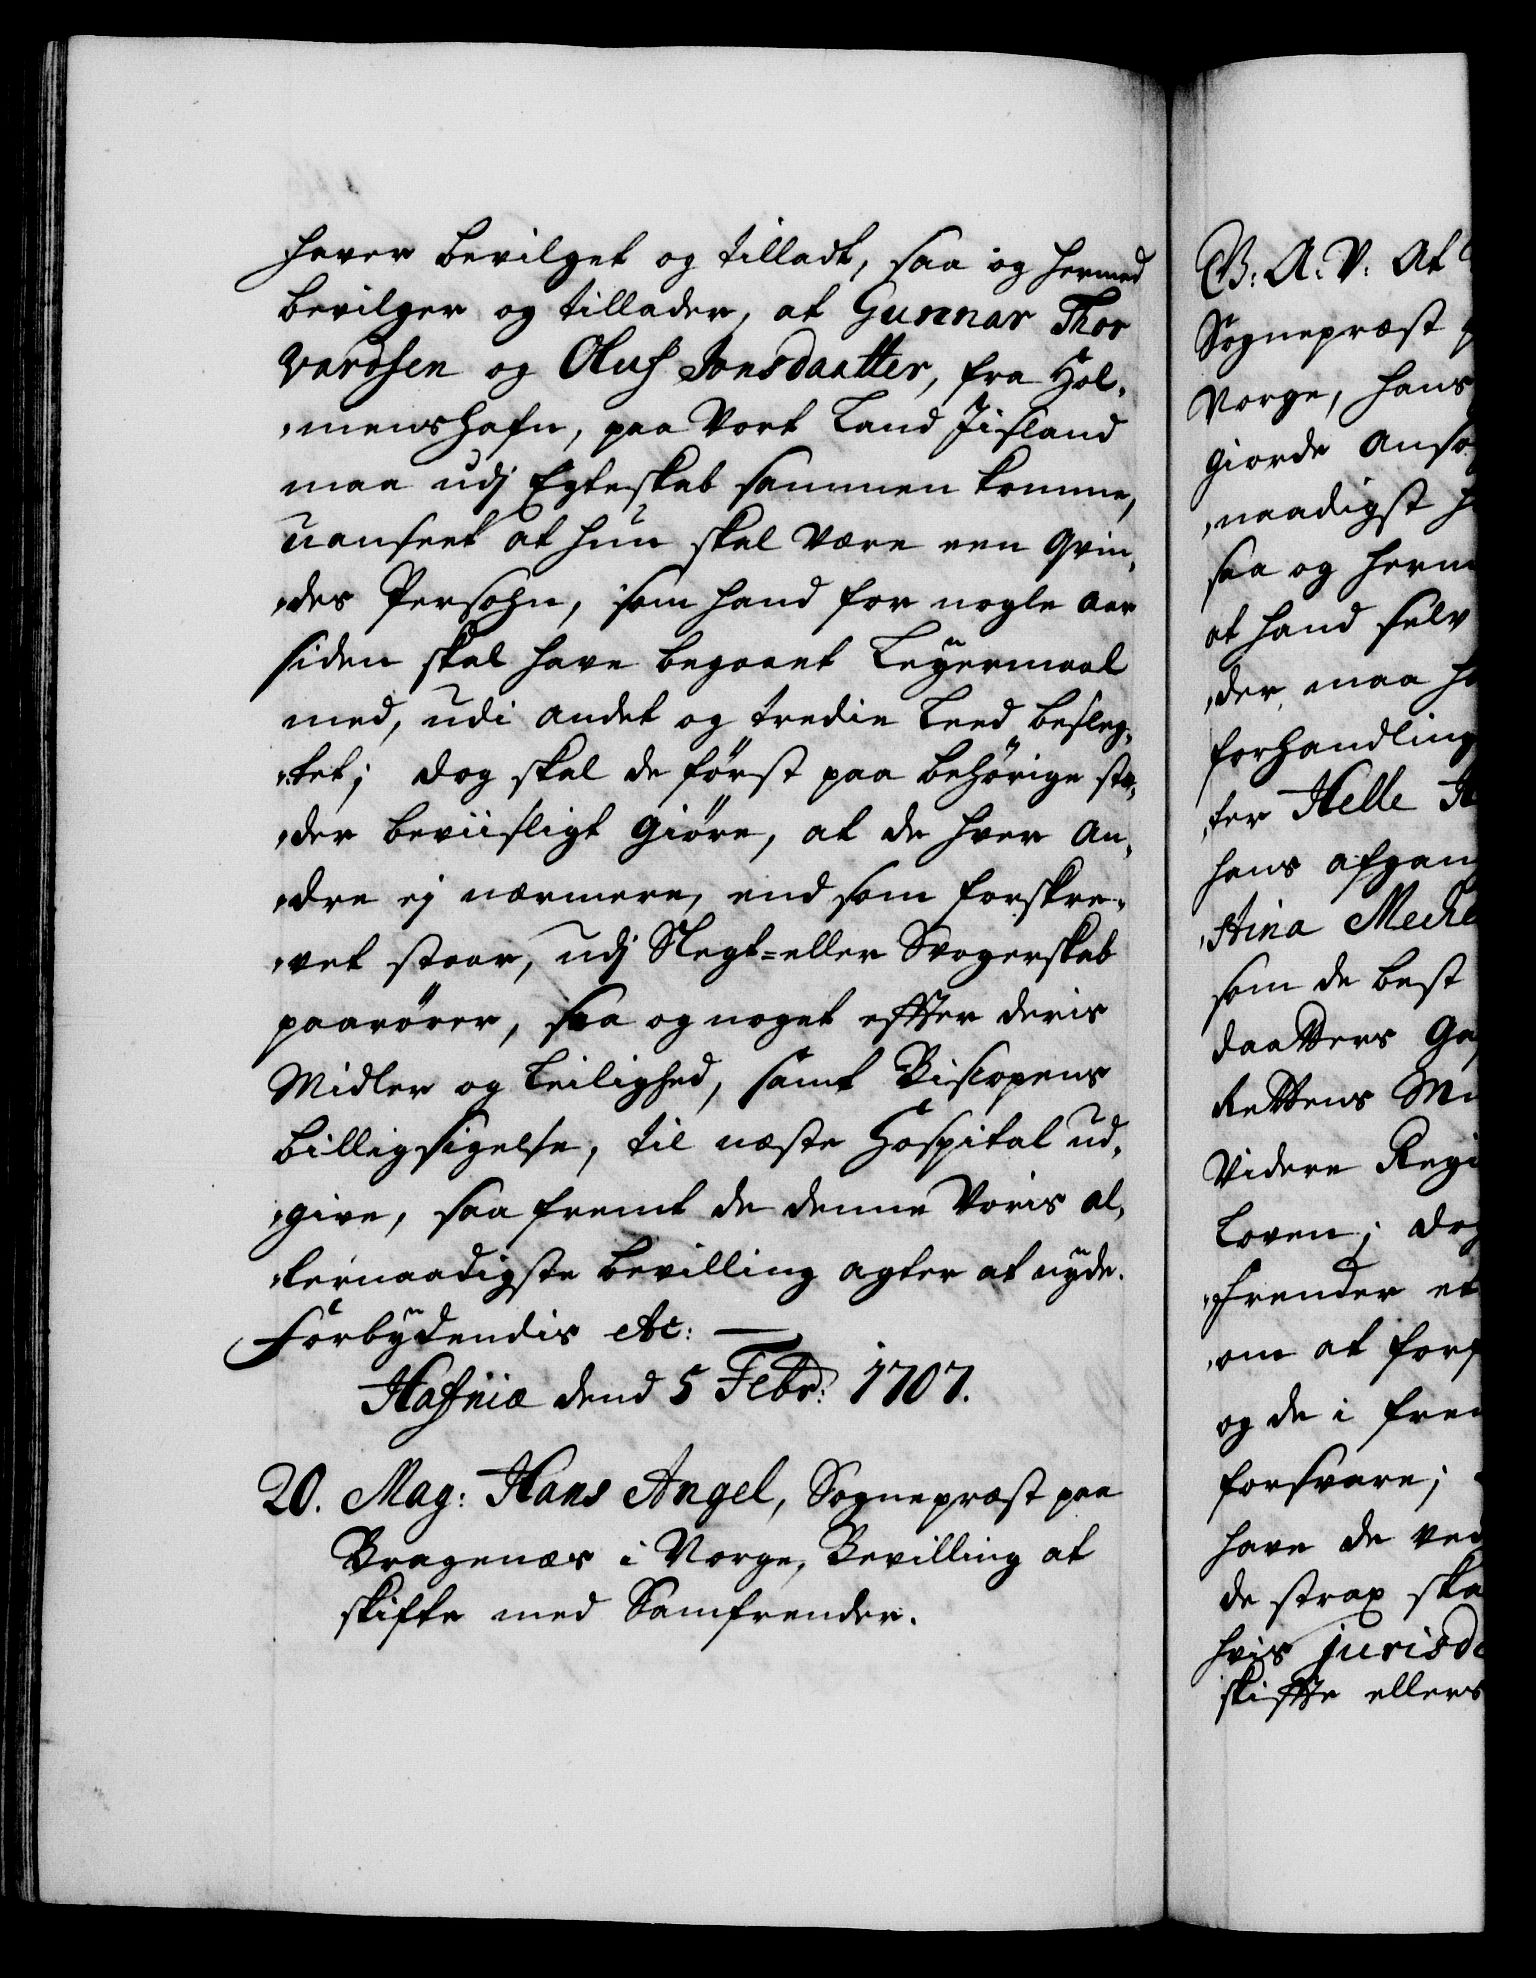 hafver bevilget og tilladt, saa og hermed
bevilger og tillader, at Gunnar Thor
vardsen og Oluf Jonsdaatter, fra Hol-
menshafn, paa Vort Land Jisland
maa udj Egteskab sammen komme,
uanseet at hun skal være een Qvin-
des Persohn, som hand for nogle aar
siden skal have begaaet Leyermaal
med, udi andet og tredie Leed besleg-
tet; dog skal de først paa behørige stæ-
der beviisligt giøre, at de hver an-
dre ej nærmere, end som forskre-
vet staar, udj Slegt- eller Svogerskab
paarører, saa og noget effter deris
Midler og leilighed, samt Biscopens
billigsigelse, til næste Hospital ud-
give, saa fremt de denne Voris al-
lernaadigste bevilling agter at nyde.
Forbydendis etc: —
Hafniæ dend 5 Febr: 1707.
20. Mag: Hans Angel, Sognepræst paa
Bragenæs i Norge, Bevilling at
skifte med Samfrender.
G. A. V: At
Sognepræst
Norge, hans
giorde ansø
naadigst
saa og herm
at hand selv
der, maa
forhandling
ter Helle
hans afgan
stina Mechel
som de best
daatters
Rettens
Videre Regi
Loven; dog
frender et
om at for
og de i frem
forsvare;
have de ved
de strax ska
hvis jurisd
skiffte ellers